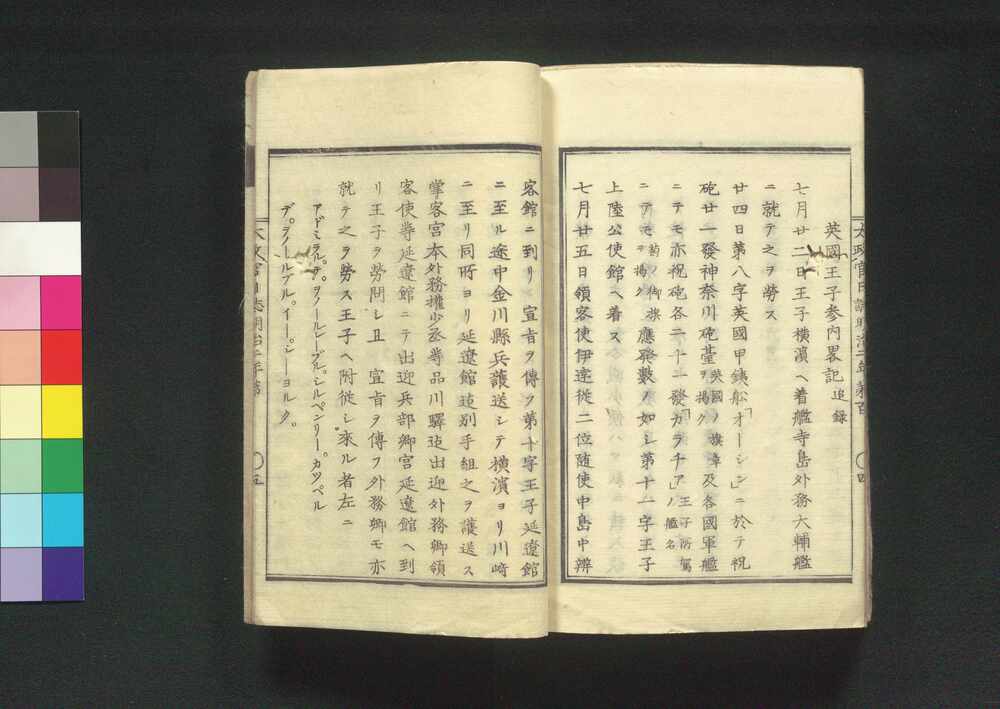 英國王子参内畧記追錄
七月廿二日王子横濵ヘ着艦寺島外務大輔艦
ニ就テ之ヲ勞ス
廿四日第八字英國甲銕舩「オーシン」ニ於テ祝
砲廿一發神奈川砲臺英國ノ旗章ヲ揚ク及各國軍艦
ニテモ亦祝砲各二十一發「ガラチア」王子所駕ノ艦名
ニテモ菊ノ御旗ヲ揚ク應發數ノ如シ第十一字王子
上陸公使館ヘ着ス
七月廿五日領客使伊達從二位随使中島中辨
客館ニ到リ 宣旨ヲ傳フ第十字王子延遼館
ニ至ル途中金川縣兵護送シテ横濵ヨリ川﨑
ニ至リ同所ヨリ延遼館迠別手組之ヲ護送ス
掌客宮本外務權少丞等品川驛迠出迎外務卿領
客使等延遼館ニテ出迎兵部卿宮延遼館ヘ到
リ王子ヲ勞問シ且 宣旨ヲ傳フ外務卿モ亦
就テ之ヲ勞ス王子ヘ附從シ來ル者左ニ
アドミラル。ヂ。ヲノールーブル。シルヘンリー。カツペル
デ。ヲノールブル。イー。シーヨルク。